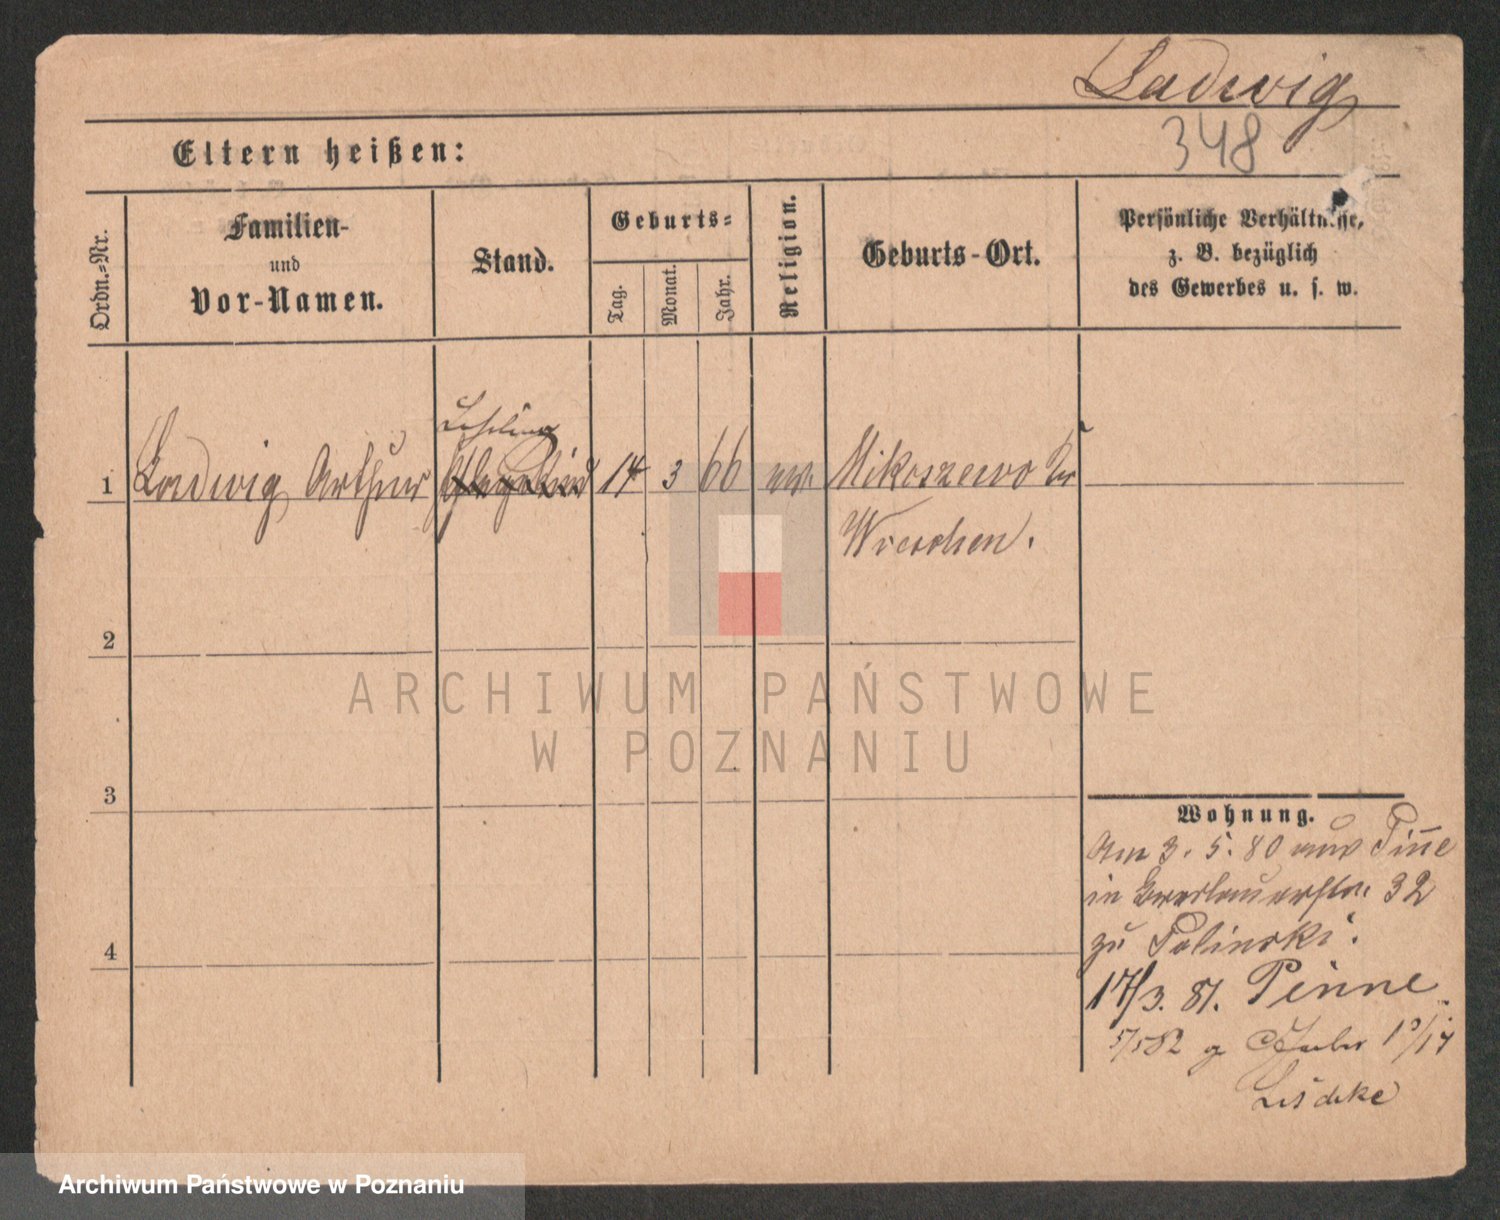 Ladwig
348
Eltern heißen:
Ordn.-Nr.
Familien-
und
Vor-Namen.
Stand.
Geburts-
Tag.
Monat.
Jahr.
Religion.
Geburts-Ort.
Persönliche Verhältnisse,
z. B. bezüglich
des Gewerbes u. s. w.
Lehrling
1 Ladwig Arthur Pflegekind 14 3 66 ev. Mikoszewo Kr
Wreschen.
2
3
4
Wohnung.
Am 3. 5. 80 aus Pinne
in Breslauerstr. 32
zu Polinski.
17/3. 81. Pinne
5/5 82
Lischke
ARCHIWUM PAŃSTWOWE
W POZNANIU
Archiwum Państwowe w Poznaniu